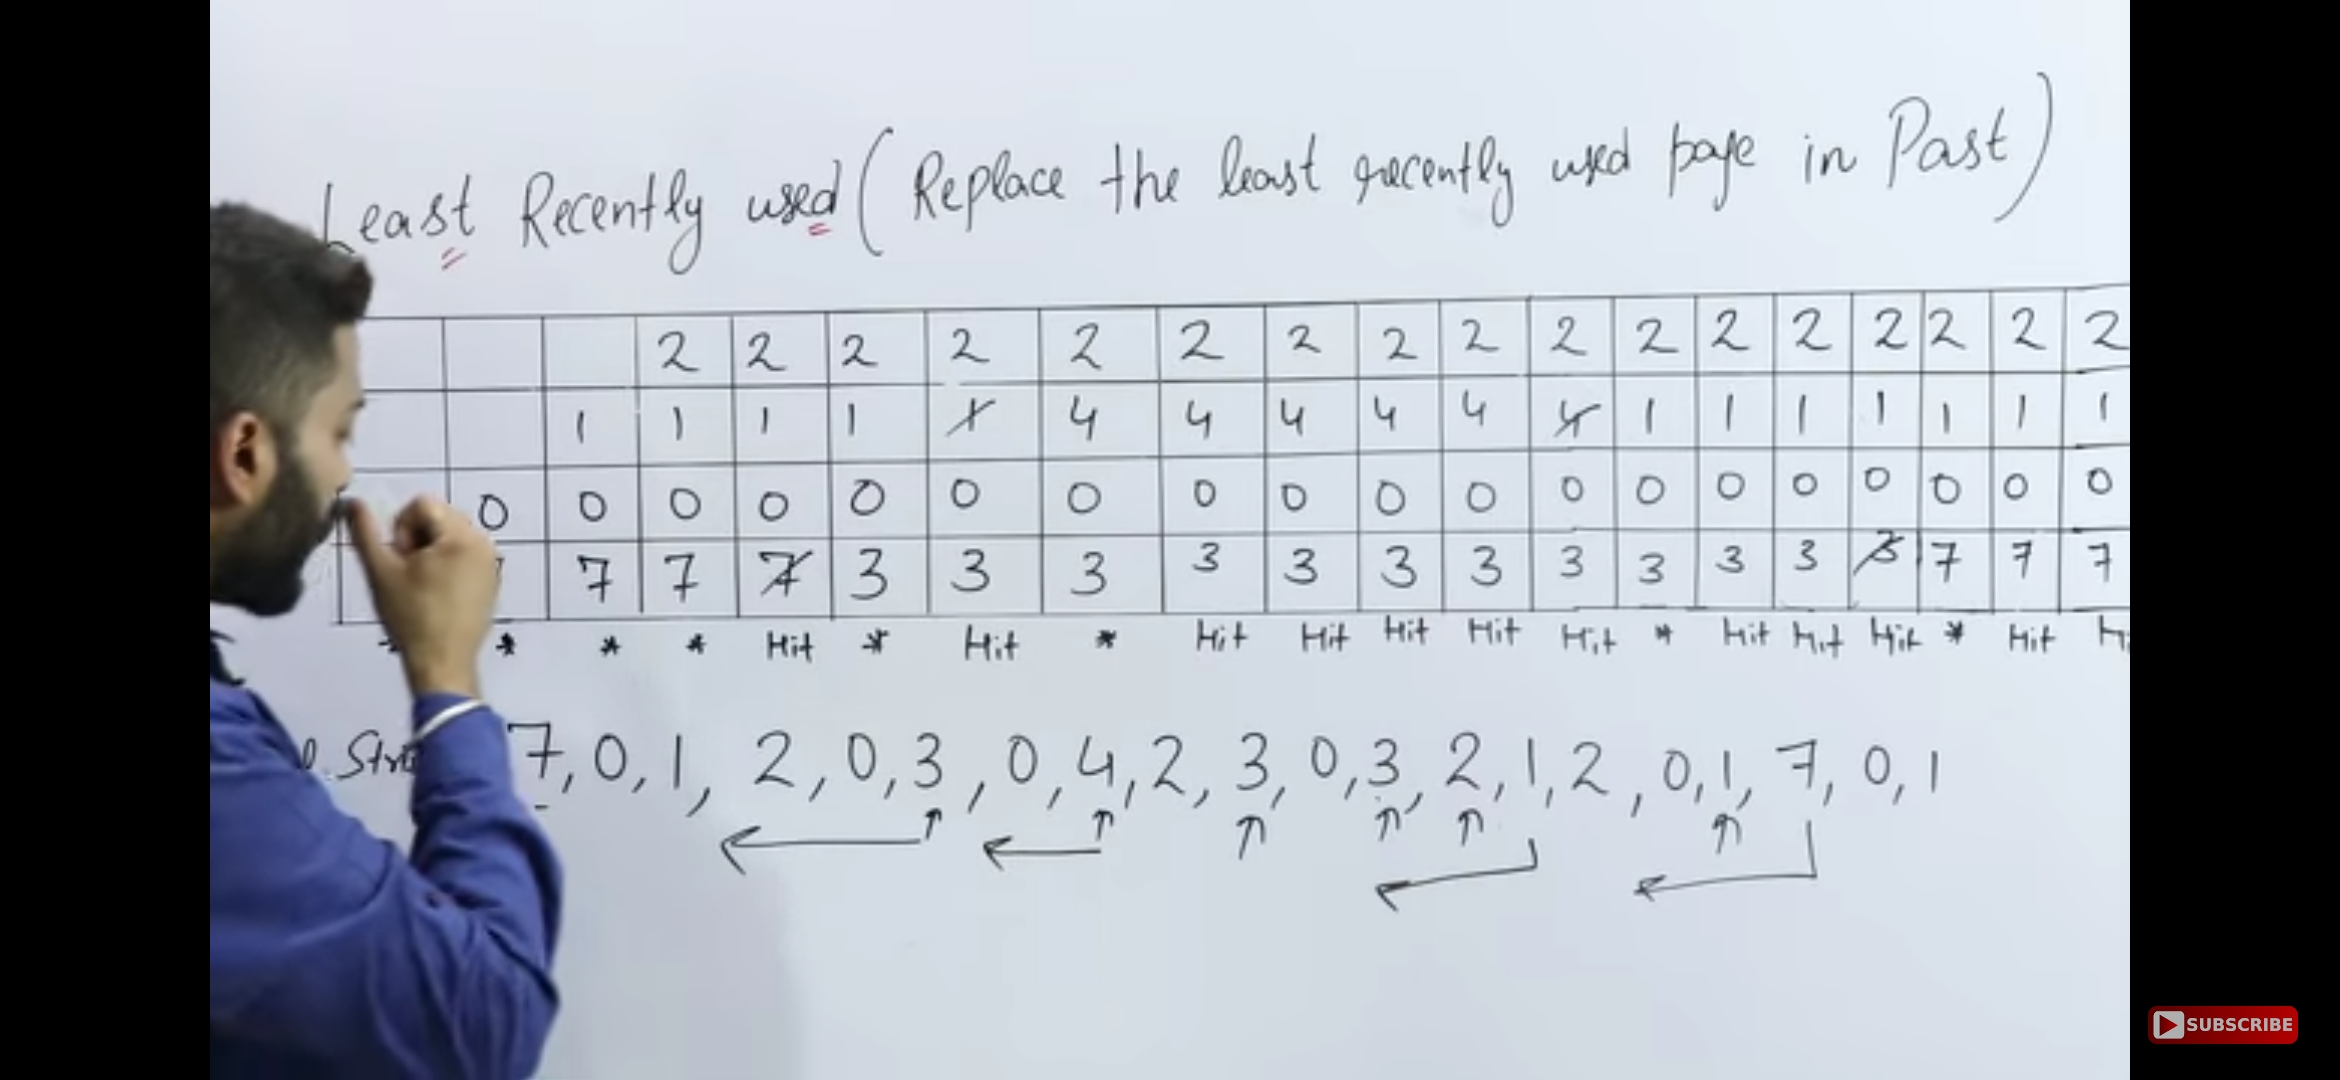 Least Recently used (Replace the least recently used page in Past)
2 2 2 2 2 2 2 2 2 2 2 2 2 2 2 2 2
1 1 1 1 1 4 4 4 4 4 4 1 1 1 1 1 1 1
0 0 0 0 0 0 0 0 0 0 0 0 0 0 0 0 0 0 0
7 7 7 3 3 3 3 3 3 3 3 3 3 3 3 7 7 7
* * * Hit * Hit * Hit Hit Hit Hit Hit * Hit Hit Hit * Hit
7, 0, 1, 2, 0, 3, 0, 4, 2, 3, 0, 3, 2, 1, 2, 0, 1, 7, 0, 1
SUBSCRIBE